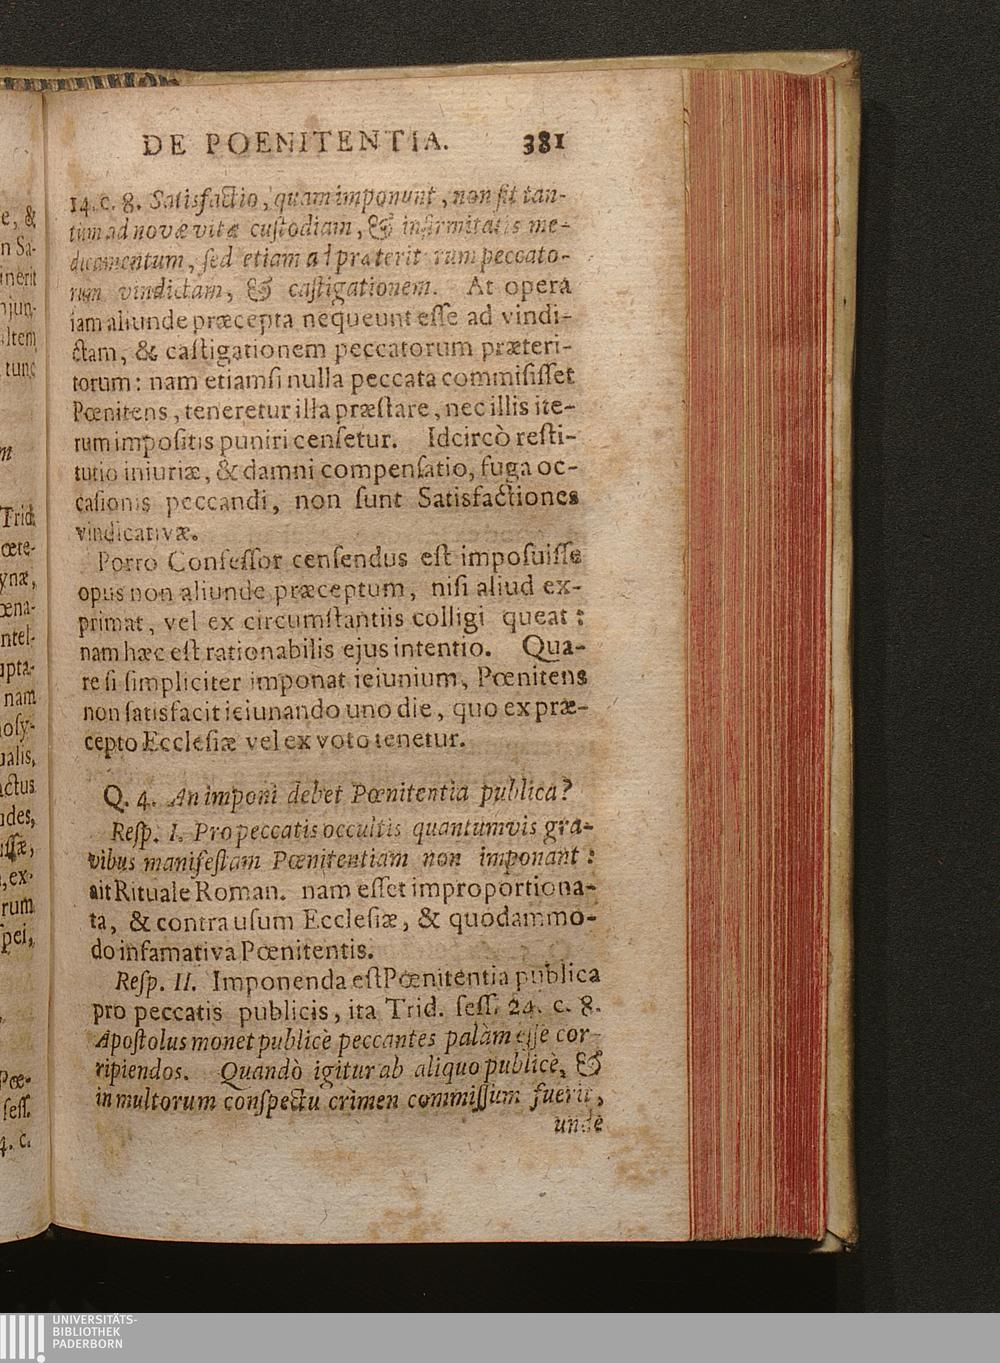 DE POENITENTIA. 381
14. c. 8. Satisfactio, quam imponunt, non sit tan-
tùm ad novæ vitæ custodiam, & infirmitatis me-
dicamentum, sed etiam ad præteritorum peccato-
rum vindictam, & castigationem. At opera
iam aliunde præcepta nequeunt esse ad vindi-
ctam, & castigationem peccatorum præteri-
torum: nam etiamsi nulla peccata commisisset
Pœnitens, teneretur illa præstare, nec illis ite-
rum impositis puniri censetur. Idcircò resti-
tutio iniuriæ, & damni compensatio, fuga oc-
casionis peccandi, non sunt Satisfactiones
vindicativæ.
Porro Confessor censendus est imposuisse
opus non aliunde præceptum, nisi aliud ex-
primat, vel ex circumstantiis colligi queat:
nam hæc est rationabilis ejus intentio. Qua-
re si simpliciter imponat ieiunium, Pœnitens
non satisfacit ieiunando uno die, quo ex præ-
cepto Ecclesiæ vel ex voto tenetur.
Q. 4. An imponi debet Pœnitentia publica?
Resp. I. Pro peccatis occultis quantumvis gra-
vibus manifestam Pœnitentiam non imponant:
ait Rituale Roman. nam esset improportiona-
ta, & contra usum Ecclesiæ, & quodammo-
do infamativa Pœnitentis.
Resp. II. Imponenda est Pœnitentia publica
pro peccatis publicis, ita Trid. sess. 24. c. 8.
Apostolus monet publicè peccantes palàm esse cor-
ripiendos. Quandò igitur ab aliquo publicè, &
in multorum conspectu crimen commissum fuerit,
unde
e, &
n Sa-
inerit
njun-
ltem
tunc
m
Trid.
œte-
ynæ,
œna-
ntel-
apta-
nam
osy-
ualis,
actus
udes,
issæ,
, ex-
rum
spei,
Pœ-
sess.
4. c.
UNIVERSITÄTS-
BIBLIOTHEK
PADERBORN